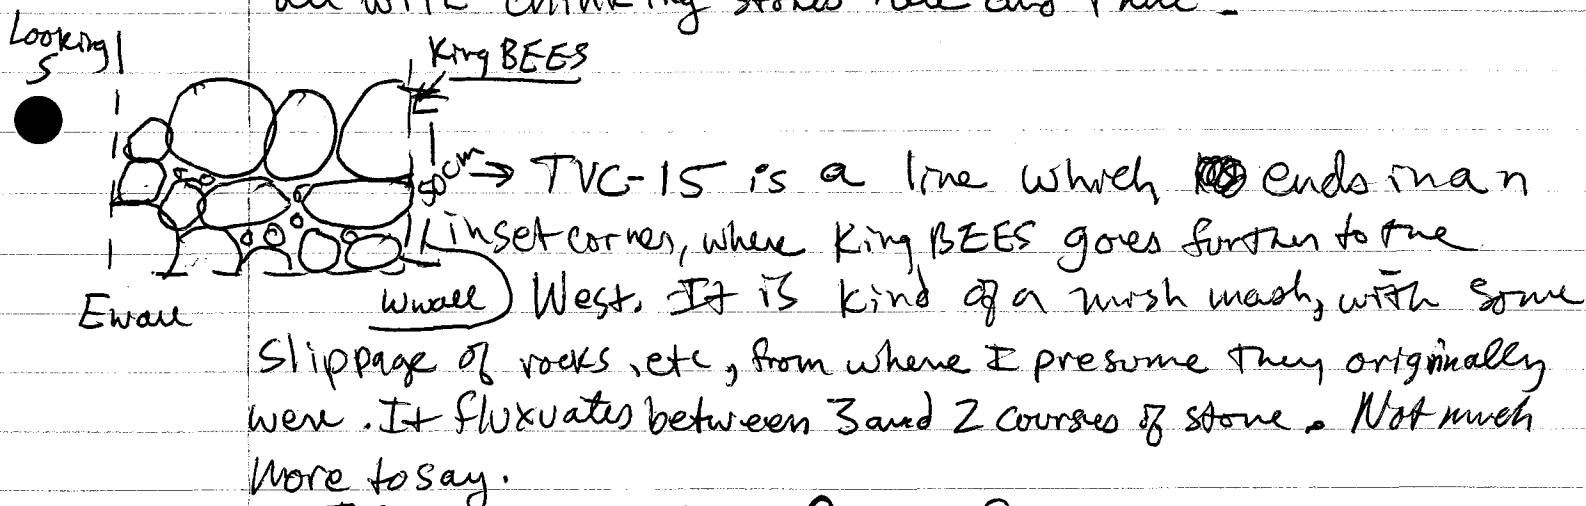 all with chinking stones here and there.
Looking
S
King BEES
50 cm
→ TVC-15 is a line which ends in an
inset corner, where King BEES goes further to the
E wall
W wall
West. It is kind of a mish mash, with some
slippage of rocks, etc, from where I presume they originally
were. It fluxuates between 3 and 2 courses of stone. Not much
more to say.